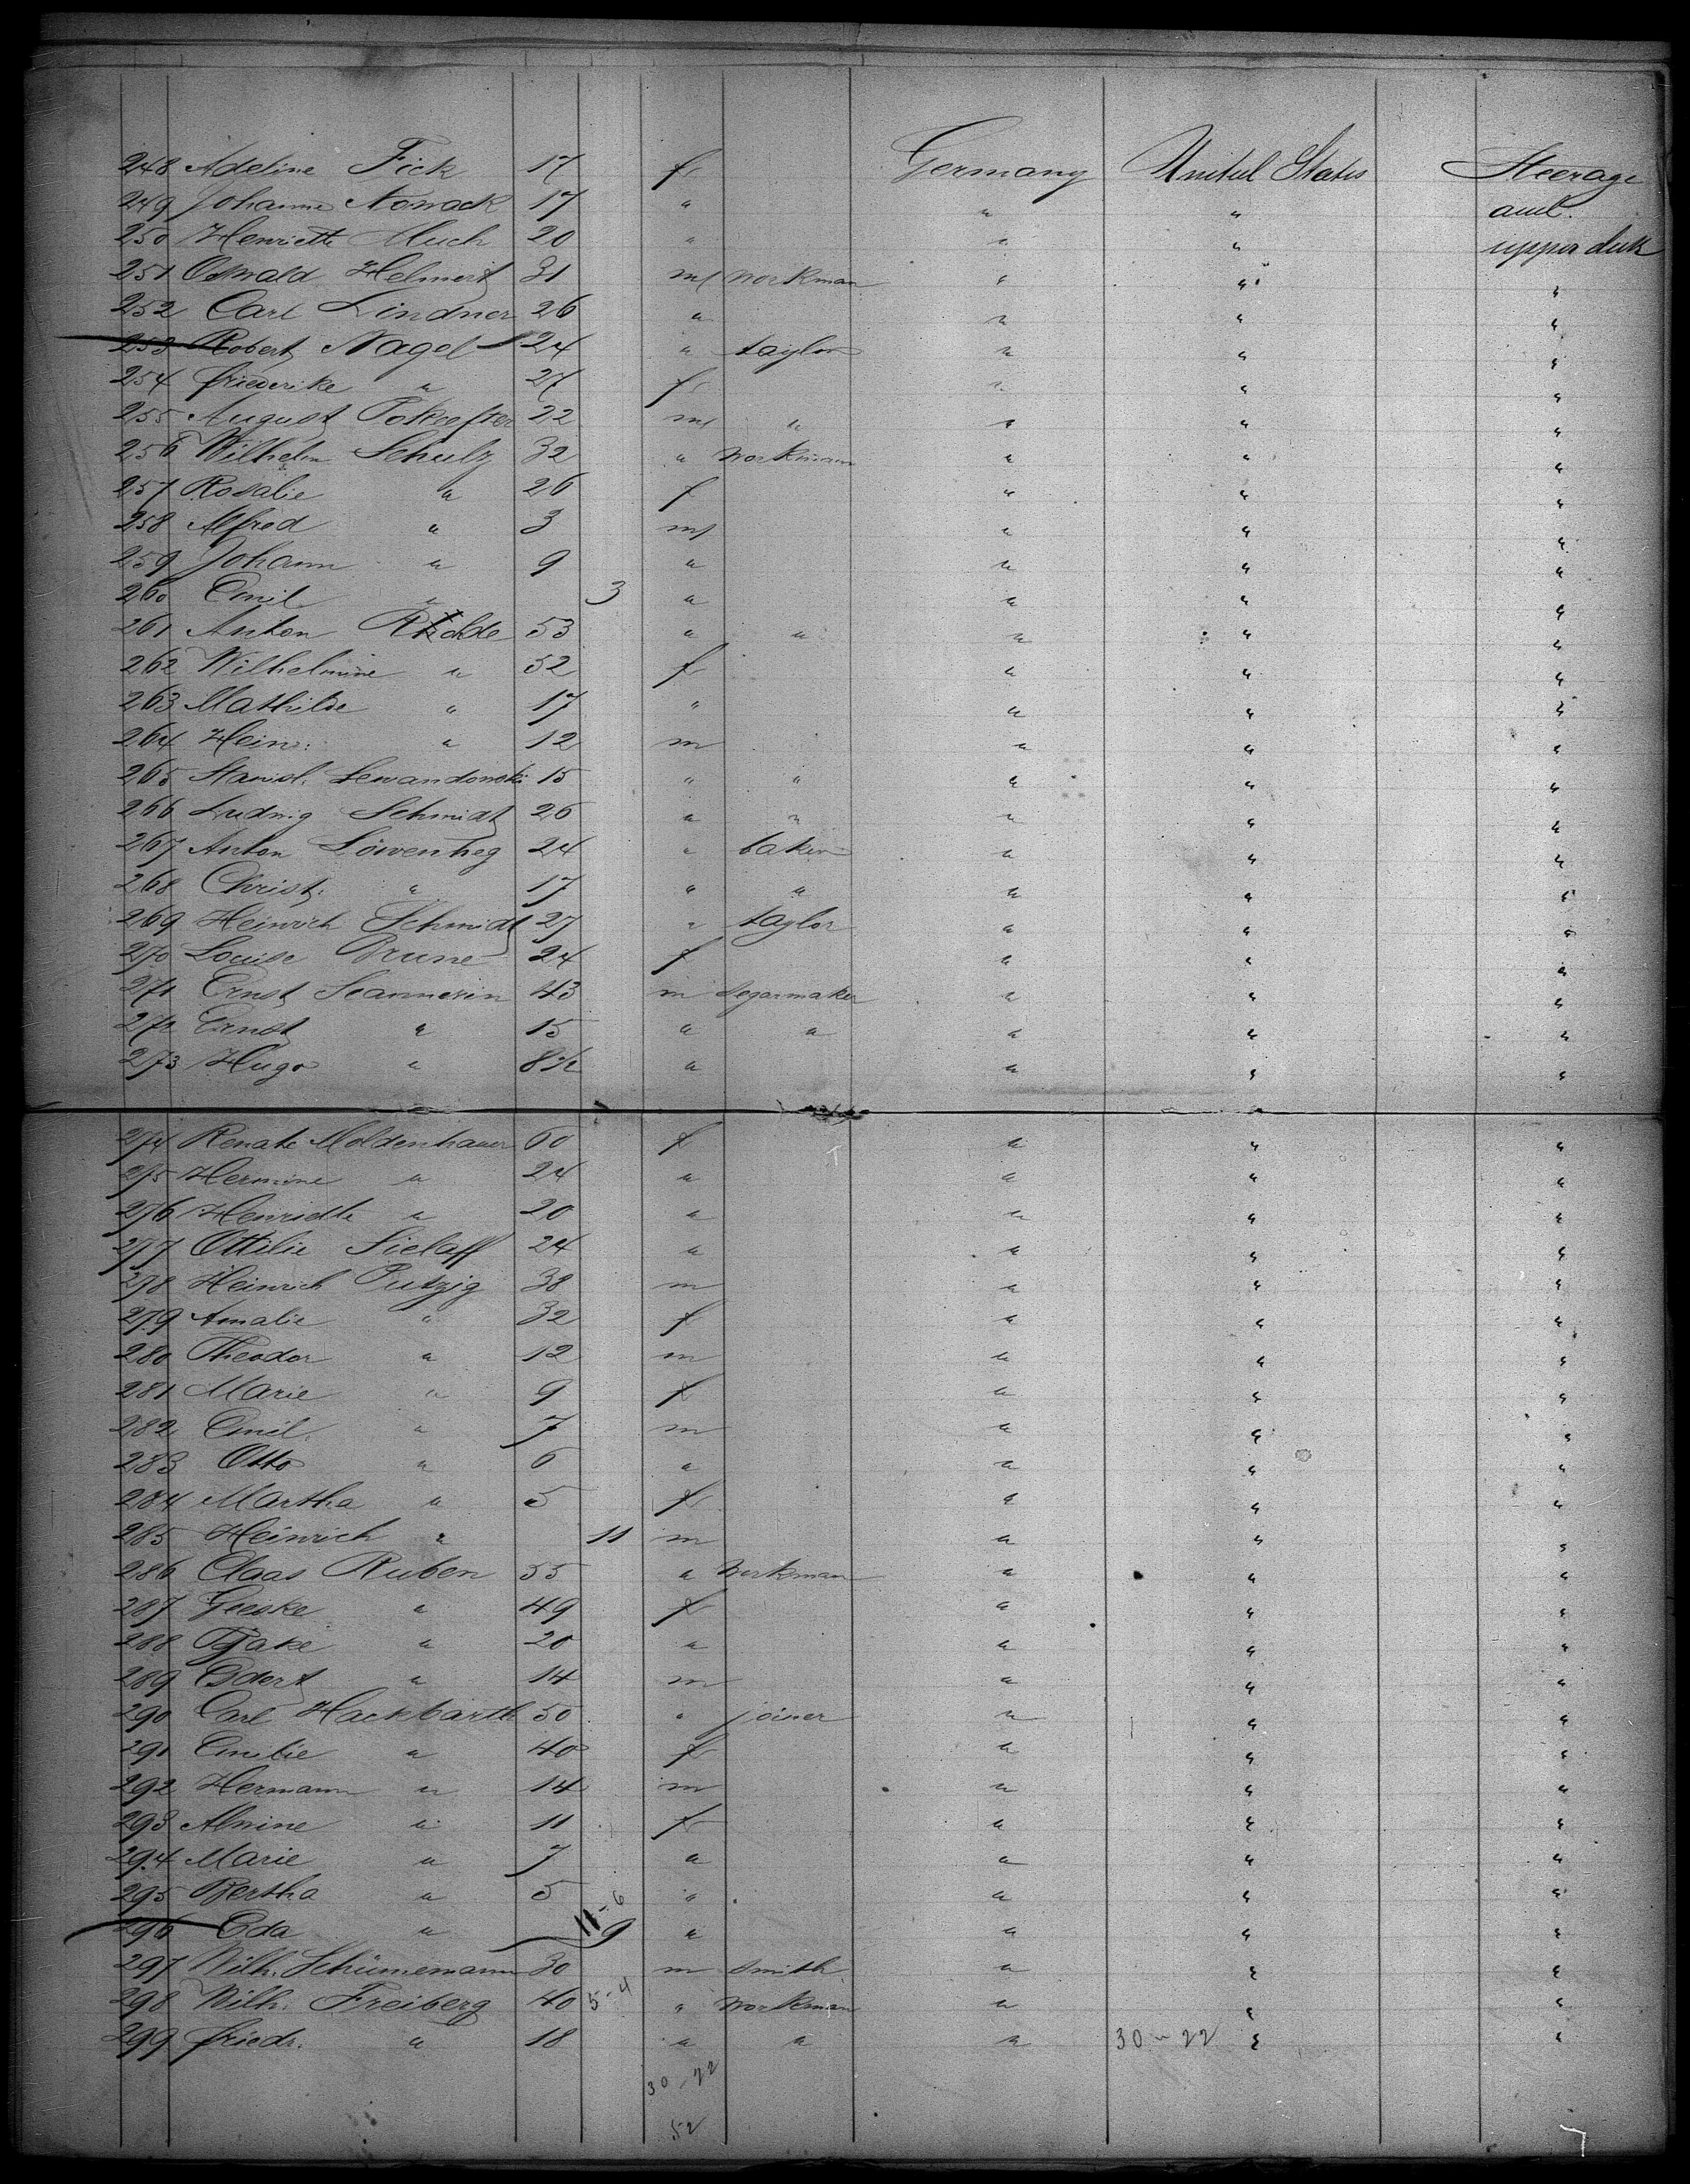 248 Adeline Fick 17 f Germany United States Steerage
249 Johanne Nowack 17 " " " and
250 Henriette Much 20 " " " upper deck
251 Oswald Helmert 31 m workman " " "
252 Carl Lindner 26 " " " "
253 Robert Nagel 24 " taylor " " "
254 Friederike " 27 f " " "
255 August 22 m " " " "
256 Wilhelm Schulz 32 " workman " " "
257 Rosalie " 26 f " " "
258 Alfred " 3 m " " "
259 Johann " 9 " " " "
260 Emil " 3 " " " "
261 Anton 53 " " " " "
262 Wilhelmine " 52 f " " "
263 Mathilde " 17 " " " "
264 Heinr. " 12 m " " "
265 Stanisl. Lewandowski 15 " " " " "
266 Ludwig Schmidt 26 " " " " "
267 Anton 24 " baker " " "
268 Christ. " 17 " " " " "
269 Heinrich Schmidt 27 " taylor " " "
270 Louise Brune 24 f " " "
271 Ernst 43 m segarmaker " " "
272 Ernst " 15 " " " " "
273 Hugo " 8½ " " " "
274 Renate Moldenhauer 60 f " " "
275 Hermine " 24 " " " "
276 Henriette " 20 " " " "
277 Ottilie Sielaff 24 " " " "
278 Heinrich Putzig 38 m " " "
279 Amalie " 32 f " " "
280 Theodor " 12 m " " "
281 Marie " 9 f " " "
282 Emil " 7 m " " "
283 Otto " 6 " " " "
284 Martha " 5 f " " "
285 Heinrich " 11 m " " "
286 Claas Ruben 55 " workman " " "
287 Geeske " 49 f " " "
288 " 20 " " " "
289 " 14 m " " "
290 Carl Hackbarth 50 " joiner " " "
291 Emilie " 40 f " " "
292 Hermann " 14 m " " "
293 Alwine " 11 f " " "
294 Marie " 7 " " " "
295 Bertha " 5 " " " "
11-6
296 Eda " 9 " " " "
297 Wilh. Schünemann 30 m smith " " "
298 Wilh. Freiberg 40 5-4 " workman " " "
299 Friedr. " 18 " " " 30-22 " "
30-22
52